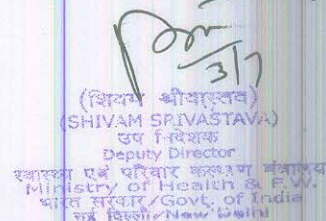 3/7
(शिवम श्रीवास्तव)
(SHIVAM SRIVASTAVA)
उप निदेशक
Deputy Director
स्वास्थ्य एवं परिवार कल्याण मंत्रालय
Ministry of Health & F.W.
भारत सरकार/Govt. of India
नई दिल्ली/New Delhi